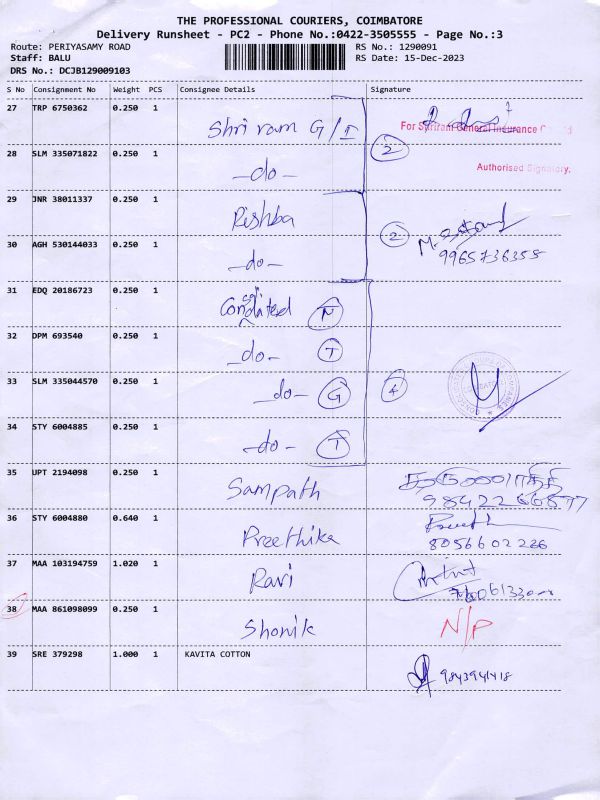 THE PROFESSIONAL COURIERS, COIMBATORE
Delivery Runsheet - PC2 - Phone No.:0422-3505555 - Page No.:3
Route: PERIYASAMY ROAD
RS No.: 1290091
Staff: BALU
RS Date: 15-Dec-2023
DRS No.: DCJB129009103
S No Consignment No Weight PCS Consignee Details Signature
27 TRP 6750362 0.250 1 Shri ram G/I
For Sriram General Insurance
28 SLM 335071822 0.250 1 -do- 2
Authorised Signatory.
29 JNR 38011337 0.250 1 Rishba
30 AGH 530144033 0.250 1 -do- 2 9965736358
31 EDQ 20186723 0.250 1 Consolidated N
32 DPM 693540 0.250 1 -do- T
33 SLM 335044570 0.250 1 -do- G 4
34 STY 6004885 0.250 1 -do- T
35 UPT 2194098 0.250 1 Sampath
36 STY 6004880 0.640 1 Preethika 8056602226
37 MAA 103194759 1.020 1 Ravi
38 MAA 861098099 0.250 1 Shonik N/P
39 SRE 379298 1.000 1 KAVITA COTTON
9843941418